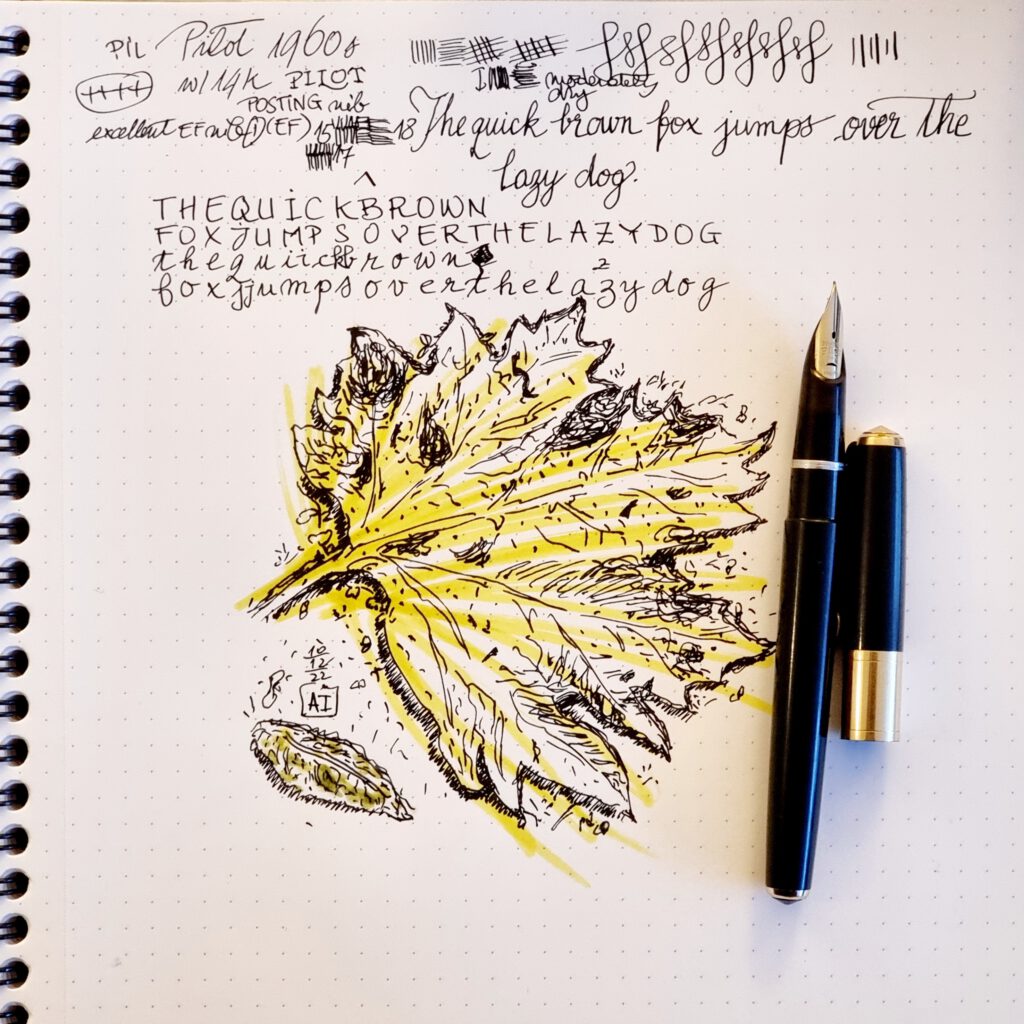 PIL Pilot 1960s
w/ 14k PILOT
POSTING nib
moderately
dry
excellent EF nib (EF) 15 18
17
The quick brown fox jumps over the
lazy dog.
THEQUICKBROWN
FOXJUMPSOVERTHELAZYDOG
thequiickbrown
foxjjumpsoverthelazydog
z
10
12
22
AI